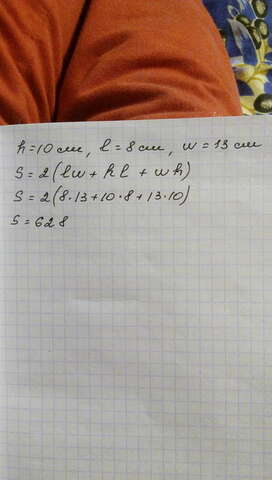 h=10 см, l=8 см, w=13 см
S=2(lw+hl+wh)
S=2(8·13+10·8+13·10)
S=628